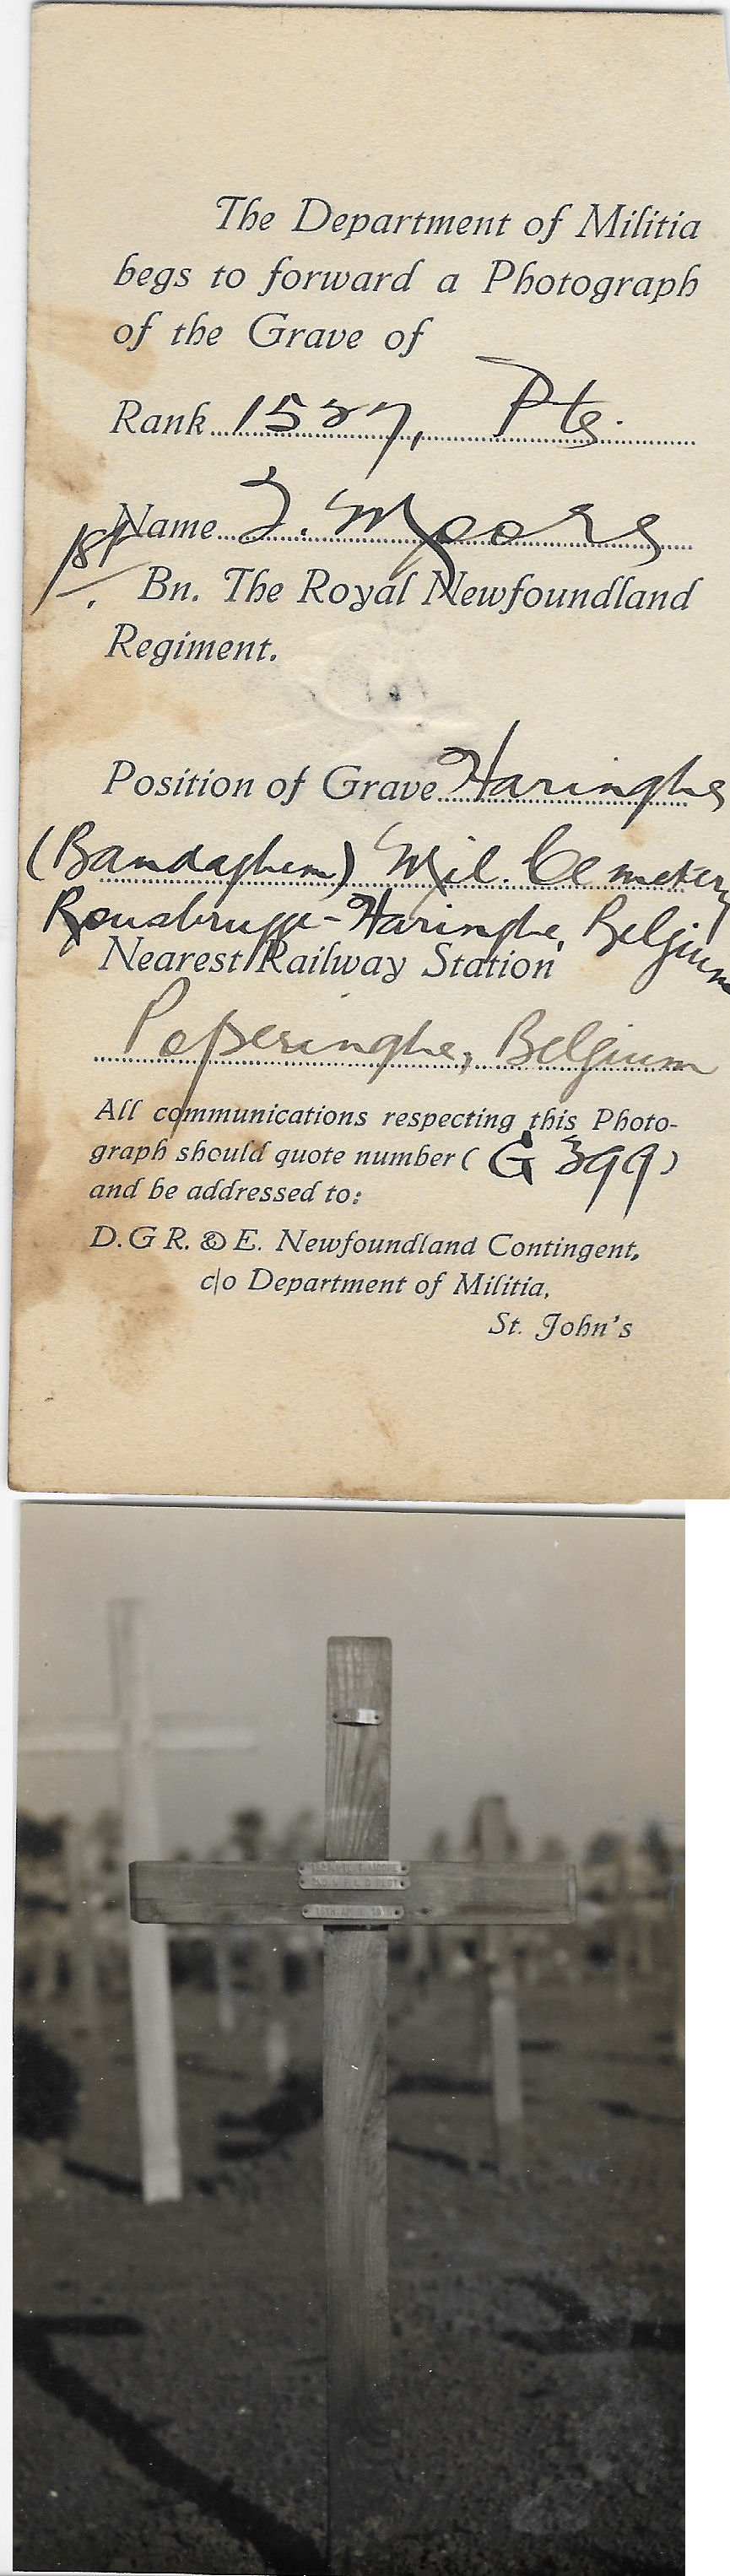 The Department of Militia
begs to forward a Photograph
of the Grave of
Rank 1527, Pte.
Name T. Moore
1st Bn. The Royal Newfoundland
Regiment.
Position of Grave Haringhe
(Bandaghem) Mil. Cemetery
Rousbrugge-Haringhe, Belgium
Nearest Railway Station
Poperinghe, Belgium
All communications respecting this Photo-
graph should quote number (G 399)
and be addressed to:
D.G R. & E. Newfoundland Contingent,
c/o Department of Militia,
St. John's
MOORE
REGT
15TH APRIL